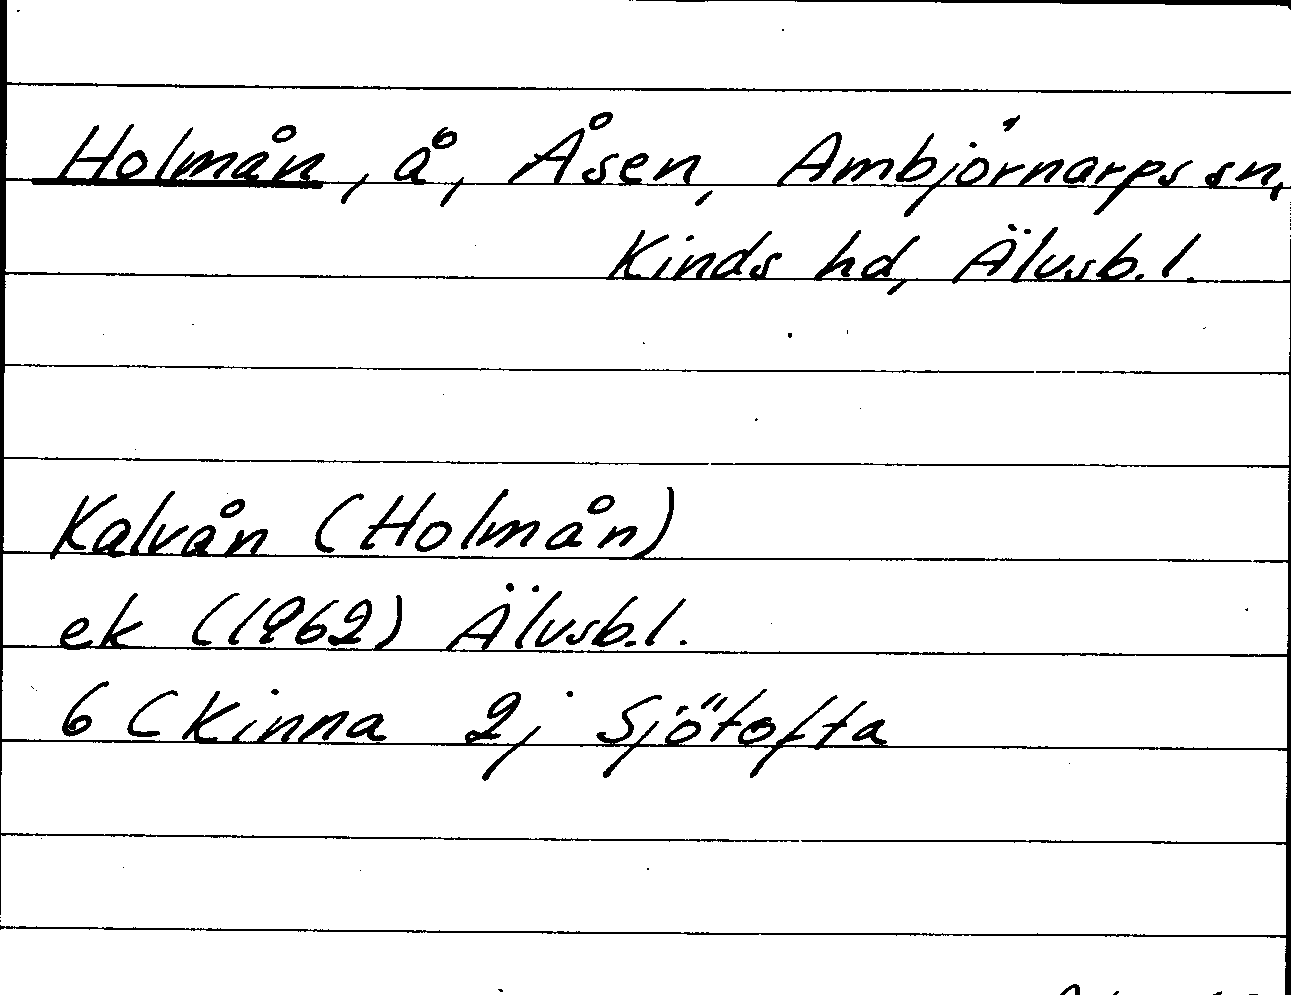 Holmån, å, Åsen, Ambjörnarps sn,
Kinds hd, Älvsb.l.
Kalvån (Holmån)
ek (1962) Älvsb.l.
6 C Kinna 2j Sjötofta